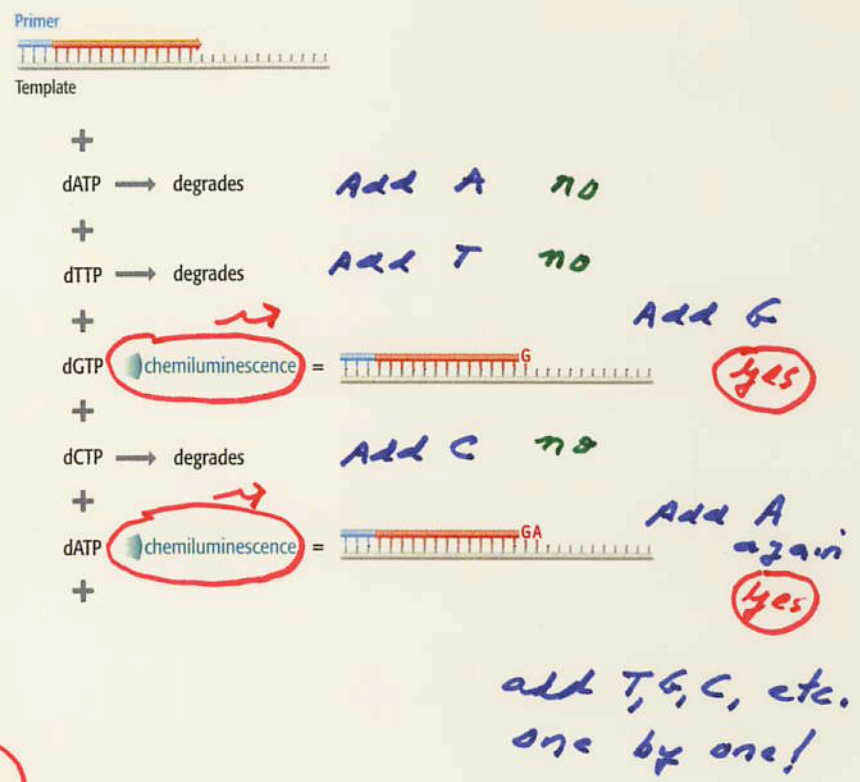 Primer
Template
+
dATP → degrades Add A no
+
dTTP → degrades Add T no
+
Add G
dGTP chemiluminescence = G yes
+
dCTP → degrades Add C no
+
Add A
again
dATP chemiluminescence = GA
+
yes
add T, G, C, etc.
one by one!